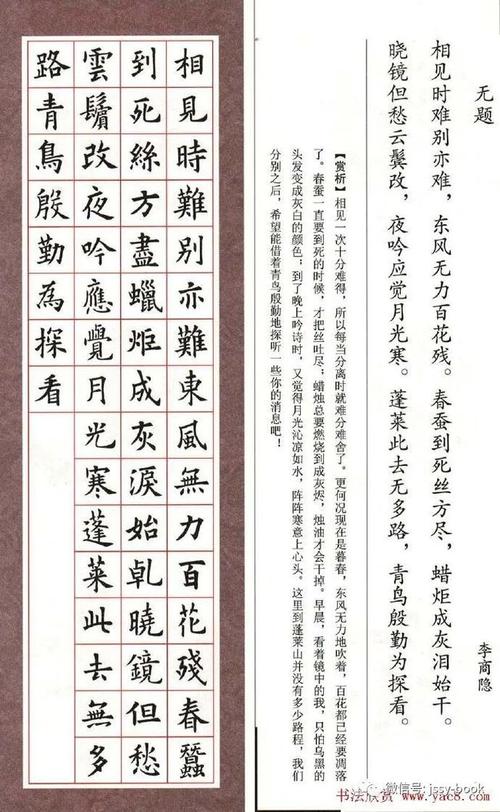 无题
李商隐
相见时难别亦难，东风无力百花残。春蚕到死丝方尽，蜡炬成灰泪始干。
晓镜但愁云鬓改，夜吟应觉月光寒。蓬莱此去无多路，青鸟殷勤为探看。
【赏析】相见一次十分难得，所以每当分离时就难分难舍了。更何况现在是暮春，东风无力地吹着，百花都已经要凋落
了。春蚕一直要到死的时候，才把丝吐尽；蜡烛总要燃烧到成灰烬，烛油才会干掉。早晨，看着镜中的我，只怕乌黑的
头发变成灰白的颜色；到了晚上吟诗时，又觉得月光沁凉如水，阵阵寒意上心头。这里到蓬莱山并没有多少路程，我们
分别之后，希望能借着青鸟殷勤地探听一些你的消息吧！
相見時難別亦難東風無力百花殘春蠶
到死絲方盡蠟炬成灰淚始乹曉鏡但愁
雲鬢改夜吟應覺月光寒蓬萊此去無多
路青鳥殷勤為探看
微信号: jssy-book
书法欣赏 www.yac8.com